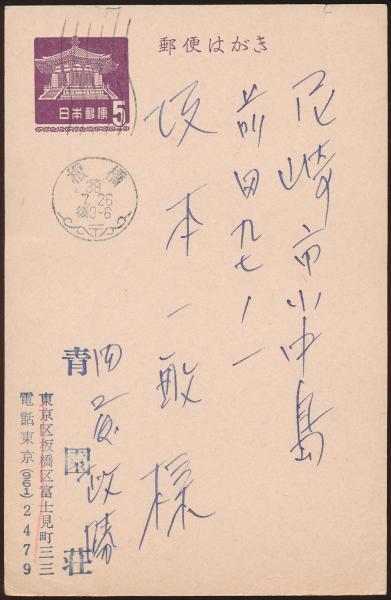 郵便はがき
日本郵便
5
板橋
38
7.26
後0-6
尼崎市小中島
前田九七ノ一
坂本一敏様
青園荘
東京区板橋区富士見町三三
電話東京(961)2479